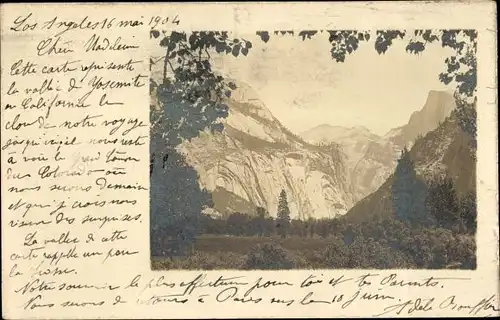 Los Angeles 16 mai 1904
Chère Madeleine
Cette carte représente
la vallée de Yosemite
en California le
clou de notre voyage
auquel nous reste
à voir le Grd Canon
du Colorado où
nous serons demain
et qui je crois nous
réserve des surprises.
La vallée de cette
carte rappelle un peu
la
Notre souvenir le plus affectueux pour toi et tes Parents
Nous serons de retour à Paris vers le 10 juin. Adèle